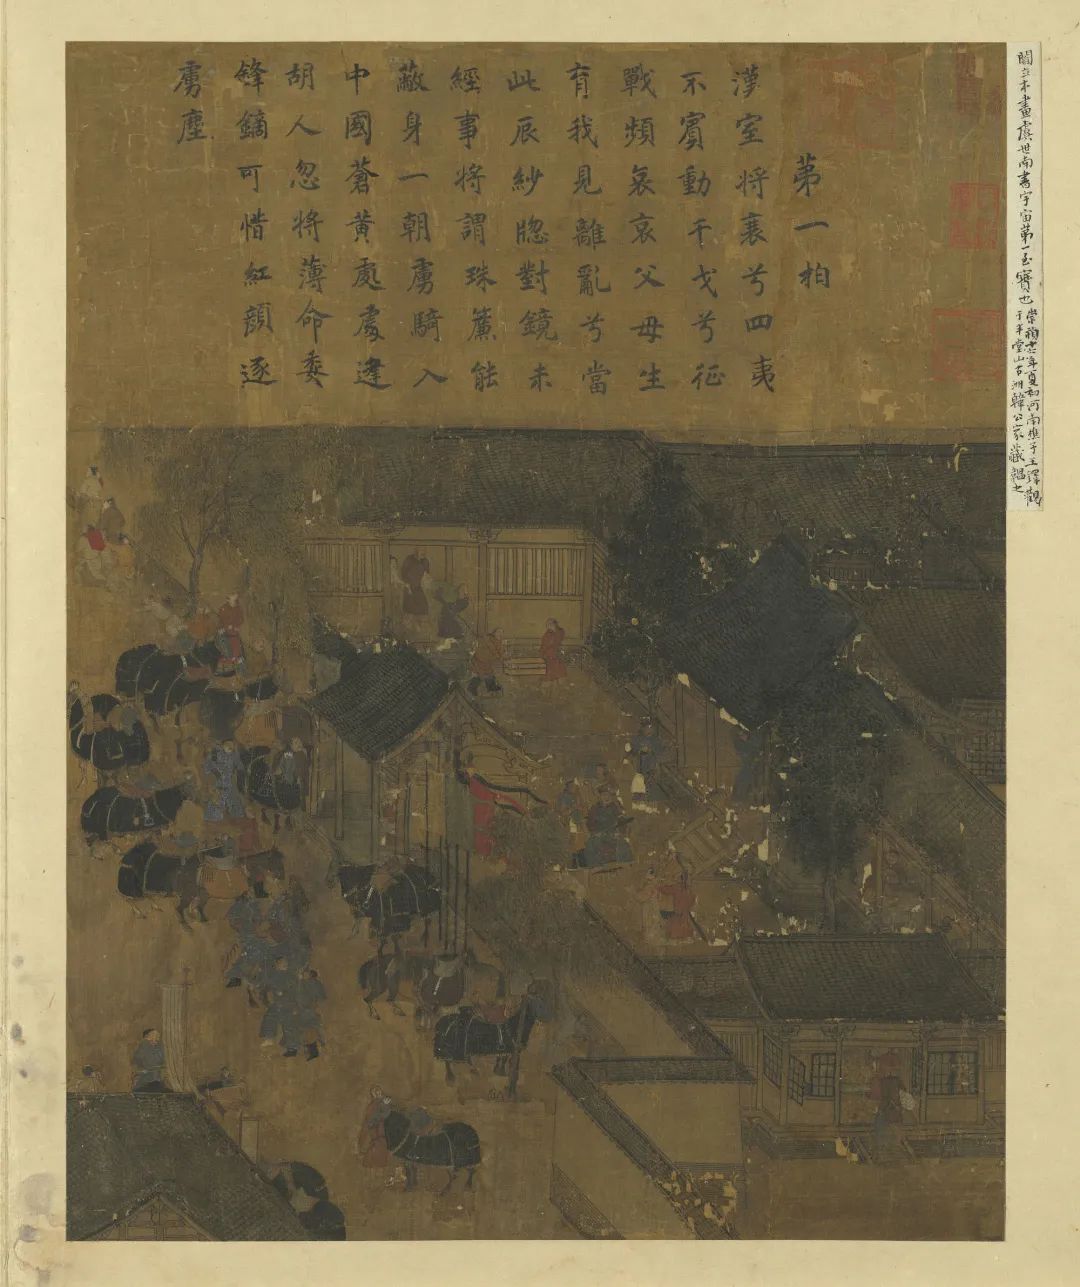 閻立本畫虞世南書宇宙第一至寶也
年夏初河南樵子王鐸觀
于半堂山古洲韓公家藏
苐一拍
漢室将襄兮四夷
不賓動干戈兮征
戰頻哀哀父母生
育我見離亂兮當
此辰紗牕對鏡未
經事将謂珠簾能
蔽身一朝虜騎入
中國蒼黄處處逢
胡人忽将薄命委
鋒鏑可惜紅顔逐
虜塵